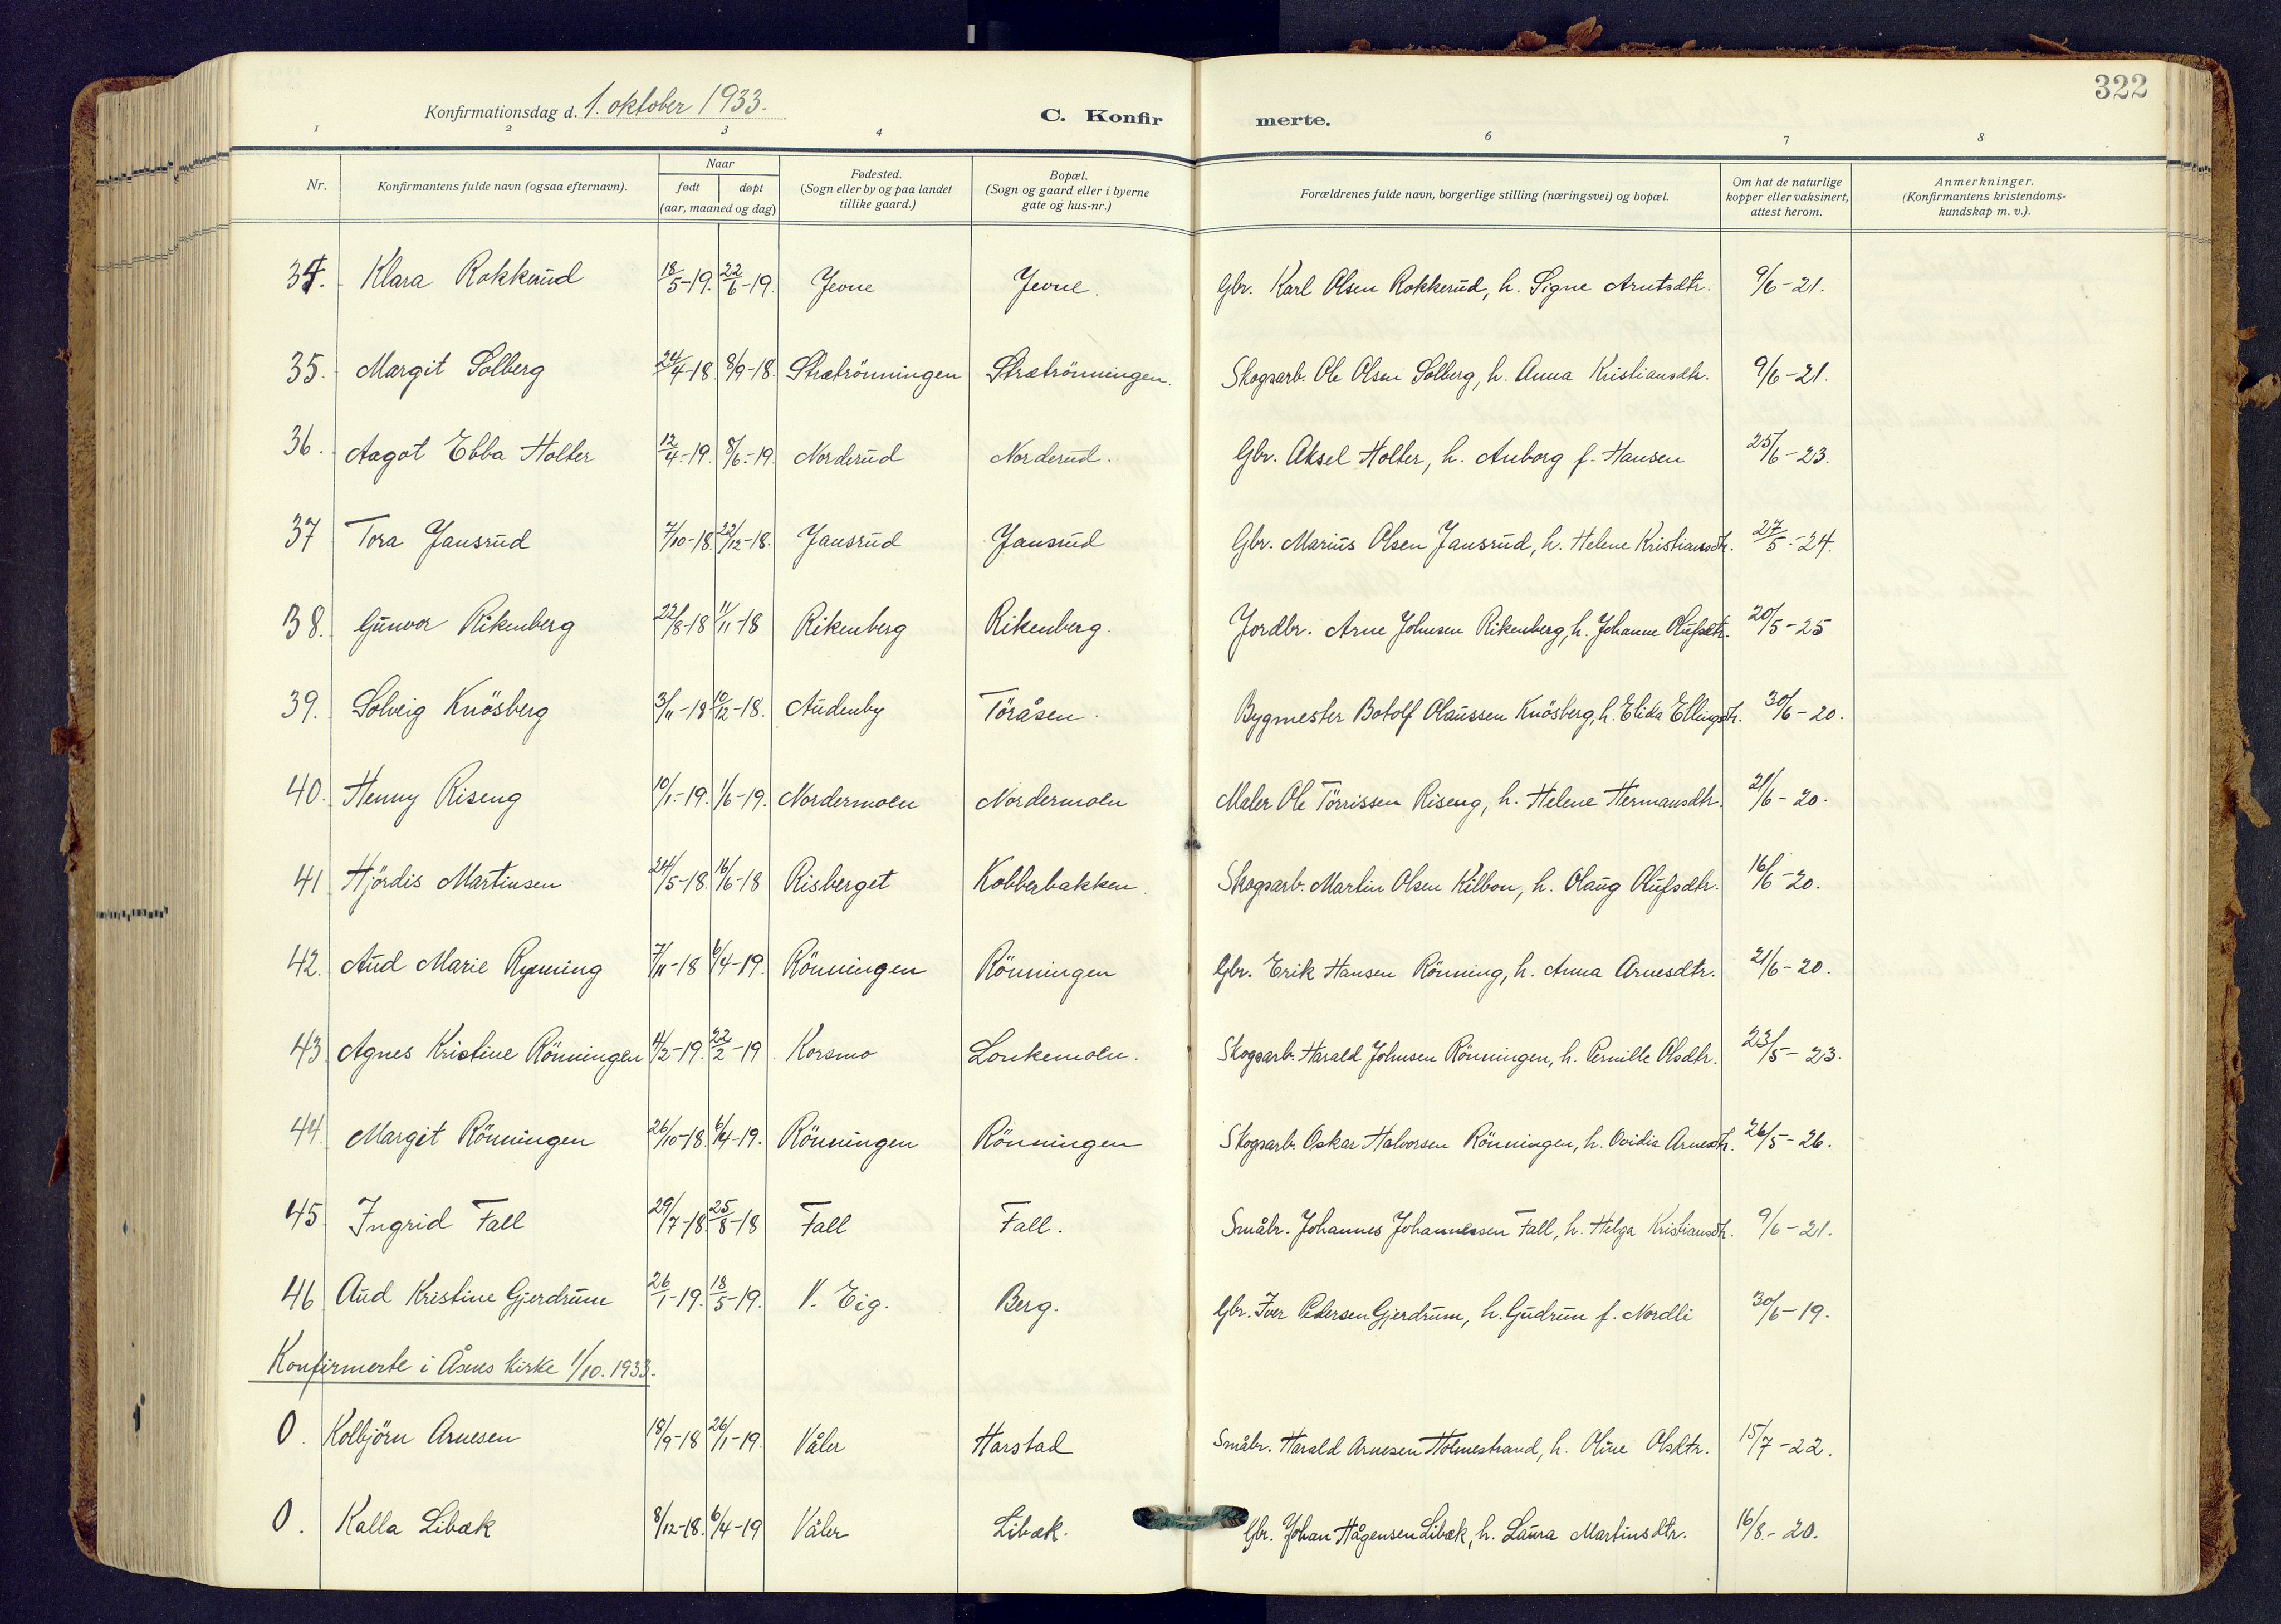 322
Konfirmationsdag d. 1. oktober 1933.
C. Konfir merte.
1 2 3 4 6 7 8
Nr. Konfirmantens fulde navn (ogsaa efternavn). Naar født døpt (aar, maaned og dag) Fødested. (Sogn eller by og paa landet tillike gaard.) Bopæl. (Sogn og gaard eller i byerne gate og hus-nr.) Forældrenes fulde navn, borgerlige stilling (næringsvei) og bopæl. Om hat de naturlige kopper eller vaksinert, attest herom. Anmerkninger. (Konfirmantens kristendoms-kundskap m. v.).
34. Klara Rokkerud 18/5-19. 22/6-19. Jevne Jevne. Gbr. Karl Olsen Rokkerud, h. Signe Arntsdtr. 9/6-21.
35. Margit Solberg 24/4-18. 8/9-18. Strætrönningen Strætrönningen. Skogsarb. Ole Olsen Solberg, h. Anna Kristiansdtr. 9/6-21.
36. Aagot Ebba Holter 12/4-19. 8/6-19. Norderud Norderud. Gbr. Aksel Holter, h. Anborg f. Hansen 25/6-23.
37 Tora Jansrud 7/10-18. 22/12-18. Jansrud Jansrud Gbr. Marius Olsen Jansrud, h. Helene Kristiansdtr. 27/5-24.
38. Gunvor Rikenberg 22/8-18 11/11-18 Rikenberg Rikenberg. Jordbr. Arne Johnsen Rikenberg, h. Johanne Olufsdtr. 20/5-25
39. Solveig Knösberg 3/11-18 10/12-18. Audenby Töråsen. Bygmester Botolf Olaussen Knösberg, h. Elida Ellingsdtr. 30/6-20.
40. Henny Riseng 10/1-19. 1/6-19. Nordermoen Nordermoen Maler Ole Törrissen Riseng, h. Helene Hermansdtr. 21/6-20.
41 Hjördis Martinsen 24/5-18. 16/6-18 Risberget Kobberbakken. Skogsarb. Martin Olsen Kilbon, h. Olaug Olufsdtr. 16/6-20.
42. Aud Marie Rynning 7/11-18 6/4-19. Rönningen Rönningen Gbr. Erik Hansen Rönning, h. Anna Arnesdtr. 21/6-20.
43 Agnes Kristine Rönningen 4/2-19. 22/2-19 Korsmo Lonkemoen. Skogsarb. Harald Johnsen Rönningen, h. Pernille Olsdtr. 23/5-23.
44 Margit Rönningen 26/10-18. 6/4-19. Rönningen Rönningen Skogsarb. Oskar Halvorsen Rönningen, h. Ovidia Arnesdtr. 26/5-26.
45 Ingrid Fall 29/7-18. 25/8-18 Fall Fall. Småbr. Johannes Johannessen Fall, h. Helga Kristiansdtr. 9/6-21.
46 Aud Kristine Gjerdrum 26/1-19. 18/5-19. V. Eig. Berg. Gbr. Iver Pedersen Gjerdrum, h. Gudrun f. Nordli 30/6-19.
Konfirmerte i Åsnes kirke 1/10. 1933.
0. Kolbjörn Arnesen 18/9-18 26/1-19. Våler Harstad Småbr. Harald Arnesen Holmestrand, h. Oline Olsdtr. 15/7-22.
0. Kalla Libæk 8/12-18. 6/4-19 Våler Libæk. Gbr. Johan Hågensen Libæk, h. Laura Martinsdtr. 16/8-20.